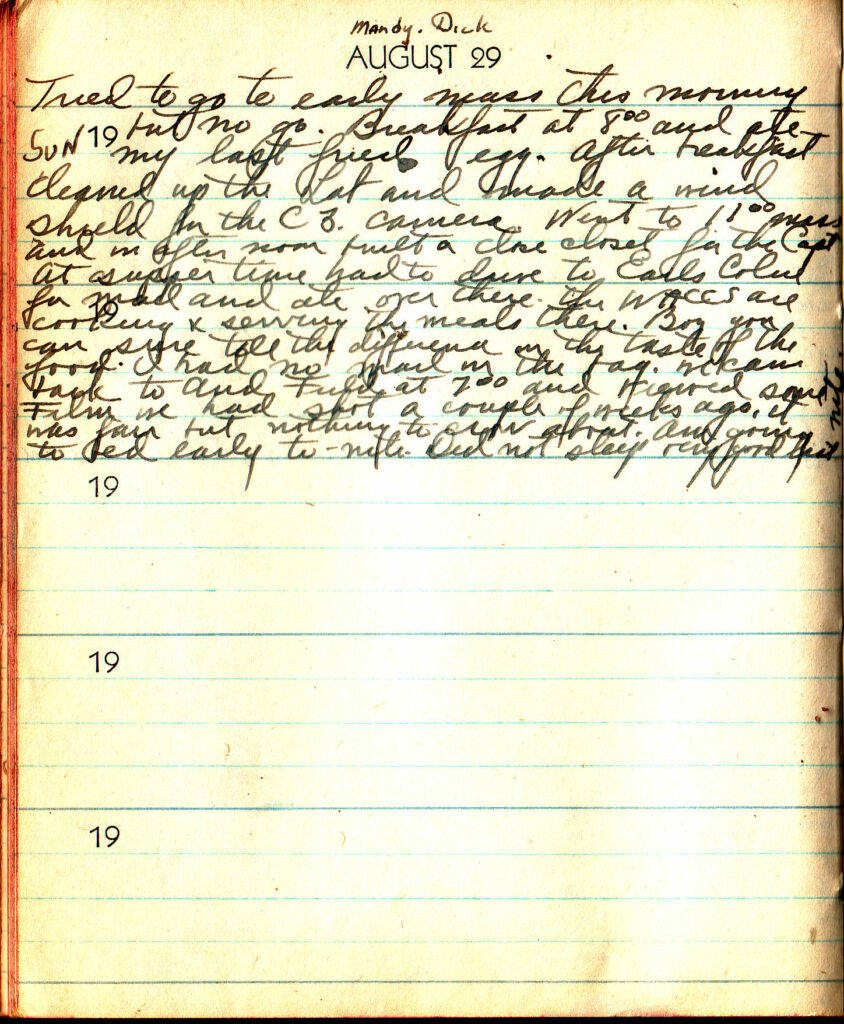 Mandy. Dick
AUGUST 29
Tried to go to early mass this morning
but no go. Breakfast at 8⁰⁰ and ate
SUN 19 my last fried egg. After breakfast
cleaned up the Lat and made a wind
shield for the C 3. camera. Went to 11⁰⁰ mass
and in after noon built a close closet for the Capt
At supper time had to drive to Earls Colne
for mail and ate over there. The WACCS are
19
cooking & serving the meals there. Boy you
can sure tell the difference in the taste of the
food. I had no mail in the bag. We came
back to And Field at 7⁰⁰ and viewed some
Film we had shot a couple of weeks ago, it
was fair but nothing to crow about. Am going
to bed early to-nite. Did not sleep very good last
nite.
19
19
19